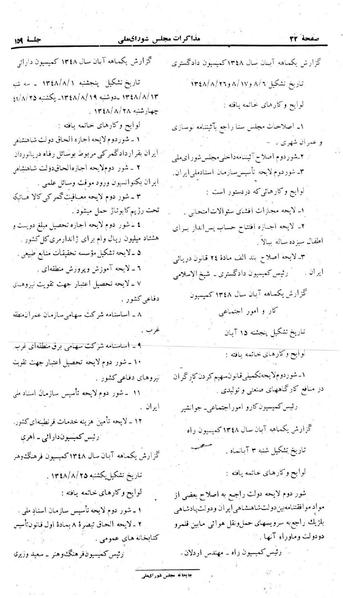 صفحهٔ ۲۲
مذاکرات مجلس شورای ملی
جلسهٔ ۱۵۹
گزارش یکماهه آبان سال ۱۳۴۸ کمیسیون دادگستری
تاریخ تشکیل ۸/۶ و ۱۷ و ۲۶/۸/۱۳۴۸
لوایح وکارهای خاتمه یافته :
۱ـ اصلاحات مجلس سنا راجع به آئیننامه نوسازی
و عمران شهری .
۲ـ شوردوم اصلاح آئیننامه داخلی مجلس شورای ملی
۳ـ شور دوم لایحه تأسیس سازمان اسناد ملی ایران .
لوایح وکارهائی که در دستور است :
۱ـ لایحه مجازات افشای سئوالات امتحانی .
۲ـ لایحه اجازه افتتاح حساب پس انداز برای
اطفال سیزده ساله ببالا .
۳ـ لایحه اصلاح بند الف مادهٔ ۲۴ قانون دریائی
ایران . رئیس کمیسیون دادگستری ـ شیخ الاسلامی
گزارش یکماهه آبان سال ۱۳۴۸ کمیسیون
کار و امور اجتماعی
تاریخ تشکیل پنجشنبه ۱۵ آبان
لوایح و کارهای خاتمه یافته :
۱ـ شور دوم لایحه تکمیلی قانون سهیم کردن کارگران
در منافع کارگاههای صنعتی و تولیدی .
رئیس کمیسیون کار و امور اجتماعی ـ جوانشیر
گزارش یکماهه آبان سال ۱۳۴۸ کمیسیون راه
تاریخ تشکیل شنبه ۳ آبانماه .
لوایح وکارهای خاتمه یافته :
شور دوم لایحه دولت راجع به اصلاح بعضی از
مواد موافقتنامه بین دولت شاهنشاهی ایران و دولت پادشاهی
بلژیک راجع به سرویسهای حمل و نقل هوائی مابین قلمرو
دو دولت و ماوراء آنها .
رئیس کمیسیون راه ـ مهندس اردلان
گزارش یکماهه آبان سال ۱۳۴۸ کمیسیون دارائی
تاریخ تشکیل پنجشنبه ۱۳۴۸/۸/۱ ـ سه شنبه
۱۳۴۸/۸/۱۳ ـ دوشنبه ۱۳۴۸/۸/۱۹ ـ یکشنبه ۴۸/۸/۲۵
چهارشنبه ۱۳۴۸/۸/۲۸
لوایح و کارهای خاتمه یافته :
۱ـ شور دوم لایحه اجازه الحاق دولت شاهنشاهی
ایران بقرارداد گمرکی مربوط بوسائل رفاه دریانوردان
۲ـ شور دوم لایحه اجازه الحاق دولت شاهنشاهی
ایران بکنوانسیون ورود موقت وسائل علمی .
۳ـ شور دوم لایحه معافیت گمرکی کالاهائیکه
تحت رژیم کابوتاژ حمل میشود .
۴ـ شور دوم لایحه اجازه تحصیل مبلغ دویست و
هشتاد میلیون ریال وام برای ژاندارمری کل کشور .
۵ـ لایحه تشکیل مؤسسه تحقیقات منابع طبیعی .
۶ـ لایحه آموزش و پرورش منطقه‌ای .
۷ـ لایحه تحصیل اعتبار جهت تقویت نیروهای
دفاعی کشور .
۸ـ اساسنامه شرکت سهامی سازمان عمران منطقه
غرب .
۹ـ اساسنامه شرکت سهامی برق منطقه‌ای غرب
۱۰ـ شور دوم لایحه تحصیل اعتبار جهت تقویت
نیروهای دفاعی کشور .
۱۱ـ شور دوم لایحه تأسیس سازمان اسناد ملی
ایران .
۱۲ـ لایحه تأمین هزینه خدمات قرنطینه‌ای کشور .
رئیس کمیسیون دارائی ـ اهری
گزارش یکماهه آبان سال ۱۳۴۸ کمیسیون فرهنگ و هنر
تاریخ تشکیل یکشنبه ۱۳۴۸/۸/۲۵
لوایح و کارهای خاتمه یافته :
۱ـ شور دوم لایحه تأسیس سازمان اسناد ملی .
۲ـ لایحه الحاق تبصرهٔ ۸ بماده اول قانون تأسیس
کتابخانه های عمومی .
رئیس کمیسیون فرهنگ و هنر ـ سعید وزیری
چاپخانه مجلس شورای ملی